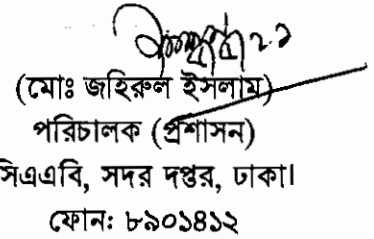 (মোঃ জহিরুল ইসলাম)
পরিচালক (প্রশাসন)
সিএএবি, সদর দপ্তর, ঢাকা।
ফোন: ৮৯০১৪১২